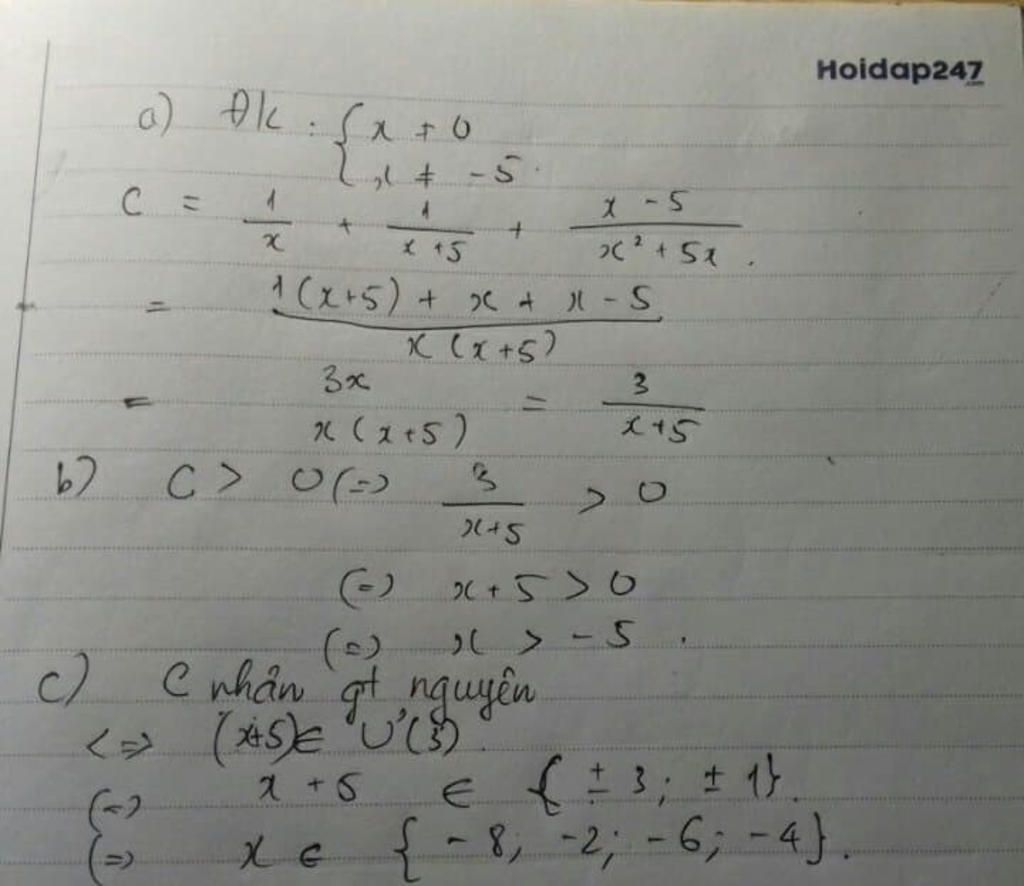 Hoidap247
a) ĐK : { x ≠ 0
x ≠ -5.
C = 1/x + 1/(x+5) + (x-5)/(x² + 5x).
= (1(x+5) + x + x - 5)/(x(x+5))
= 3x / x(x+5) = 3/(x+5)
b) C > 0 (=) 3/(x+5) > 0
(=) x + 5 > 0
(=) x > -5.
c) C nhân gt nguyên
<=> (x+5) ∈ Ư(3).
(=) x + 5 ∈ { ± 3; ± 1}.
(=) x ∈ { -8; -2; -6; -4}.